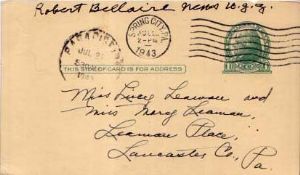 Robert Bellaire News W.J.Z.
SPRING CITY, PA.
JUL
2-PM
1943
PARADISE
JUL
THIS SIDE OF CARD IS FOR ADDRESS
Miss Lucy Leaman and
Miss Mary Leaman,
Leaman Place,
Lancaster Co.,
Pa.